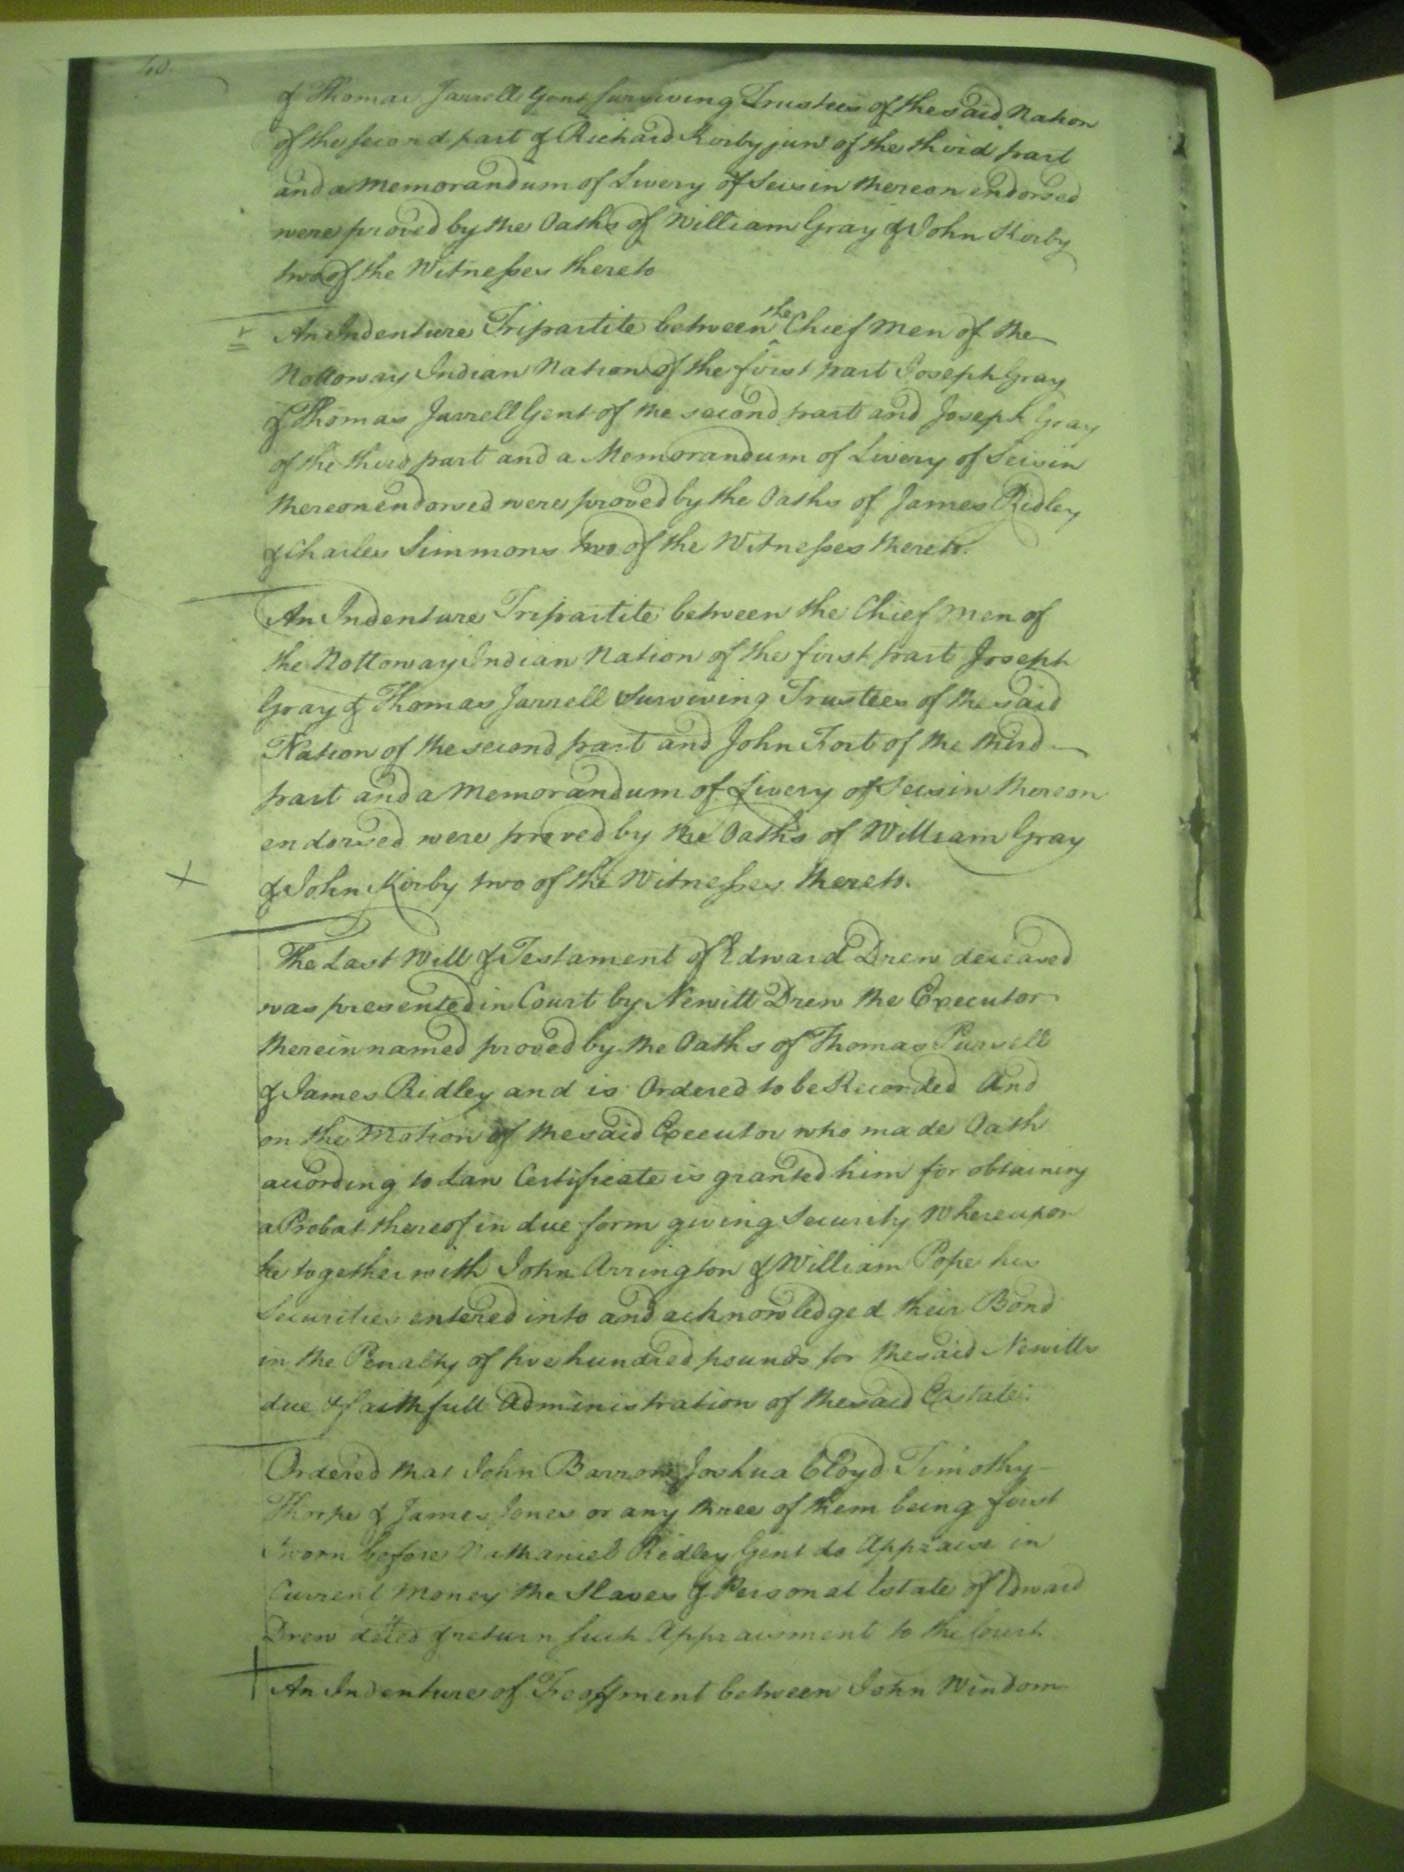 40.
& Thomas Jarrell Gent surviving Trustees of the said Nation
of the second part & Richard Kirby junr of the third part
and a Memorandum of Livery of Seisin thereon endorsed
were proved by the Oaths of William Gray & John Kirby
two of the Witnesses thereto
An Indenture Tripartite between the Chief Men of the
Nottoway Indian Nation of the first part Joseph Gray
& Thomas Jarrell Gent of the second part and Joseph Gray
of the third part and a Memorandum of Livery of Seisin
thereon endorsed were proved by the Oaths of James Ridley
& Charles Simmons two of the Witnesses thereto.
An Indenture Tripartite between the Chief Men of
the Nottoway Indian Nation of the first part Joseph
Gray & Thomas Jarrell Surviving Trustees of the said
Nation of the second part and John Fort of the third
part and a Memorandum of Livery of Seisin thereon
endorsed were proved by the Oaths of William Gray
& John Kirby two of the Witnesses thereto.
The Last Will & Testament of Edward Drew deceased
was presented in Court by Newitt Drew the Executor
therein named proved by the Oaths of Thomas Pursell
& James Ridley and is Ordered to be Recorded And
on the Motion of the said Executor who made Oath
according to Law Certificate is granted him for obtaining
a Probat thereof in due form giving Security Whereupon
he together with John Arrington & William Pope his
Securities entered into and acknowledged their Bond
in the Penalty of five hundred pounds for the said Newitts
due & faithfull Administration of the said Estate.
Ordered that John Barrow Joshua Cloyd Timothy
Thorpe & James Jones or any three of them being first
Sworn before Nathaniel Ridley Gent do Appraise in
Current Money the Slaves & Personal Estate of Edward
Drew deced & return such Appraisment to the Court
An Indenture of Feoffment between John Windom